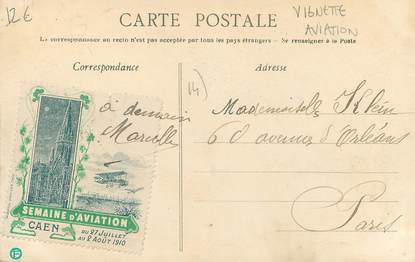 12€
CARTE POSTALE
VIGNETTE
AVIATION
La correspondance au recto n'est pas acceptée par tous les pays étrangers - Se renseigner à la Poste
Correspondance
Adresse
14)
à demain
Marcelle
Mademoiselle Klein
60 avenue d'Orléans
Paris
SEMAINE D'AVIATION
CAEN
DU 27 JUILLET
AU 2 AOÛT 1910